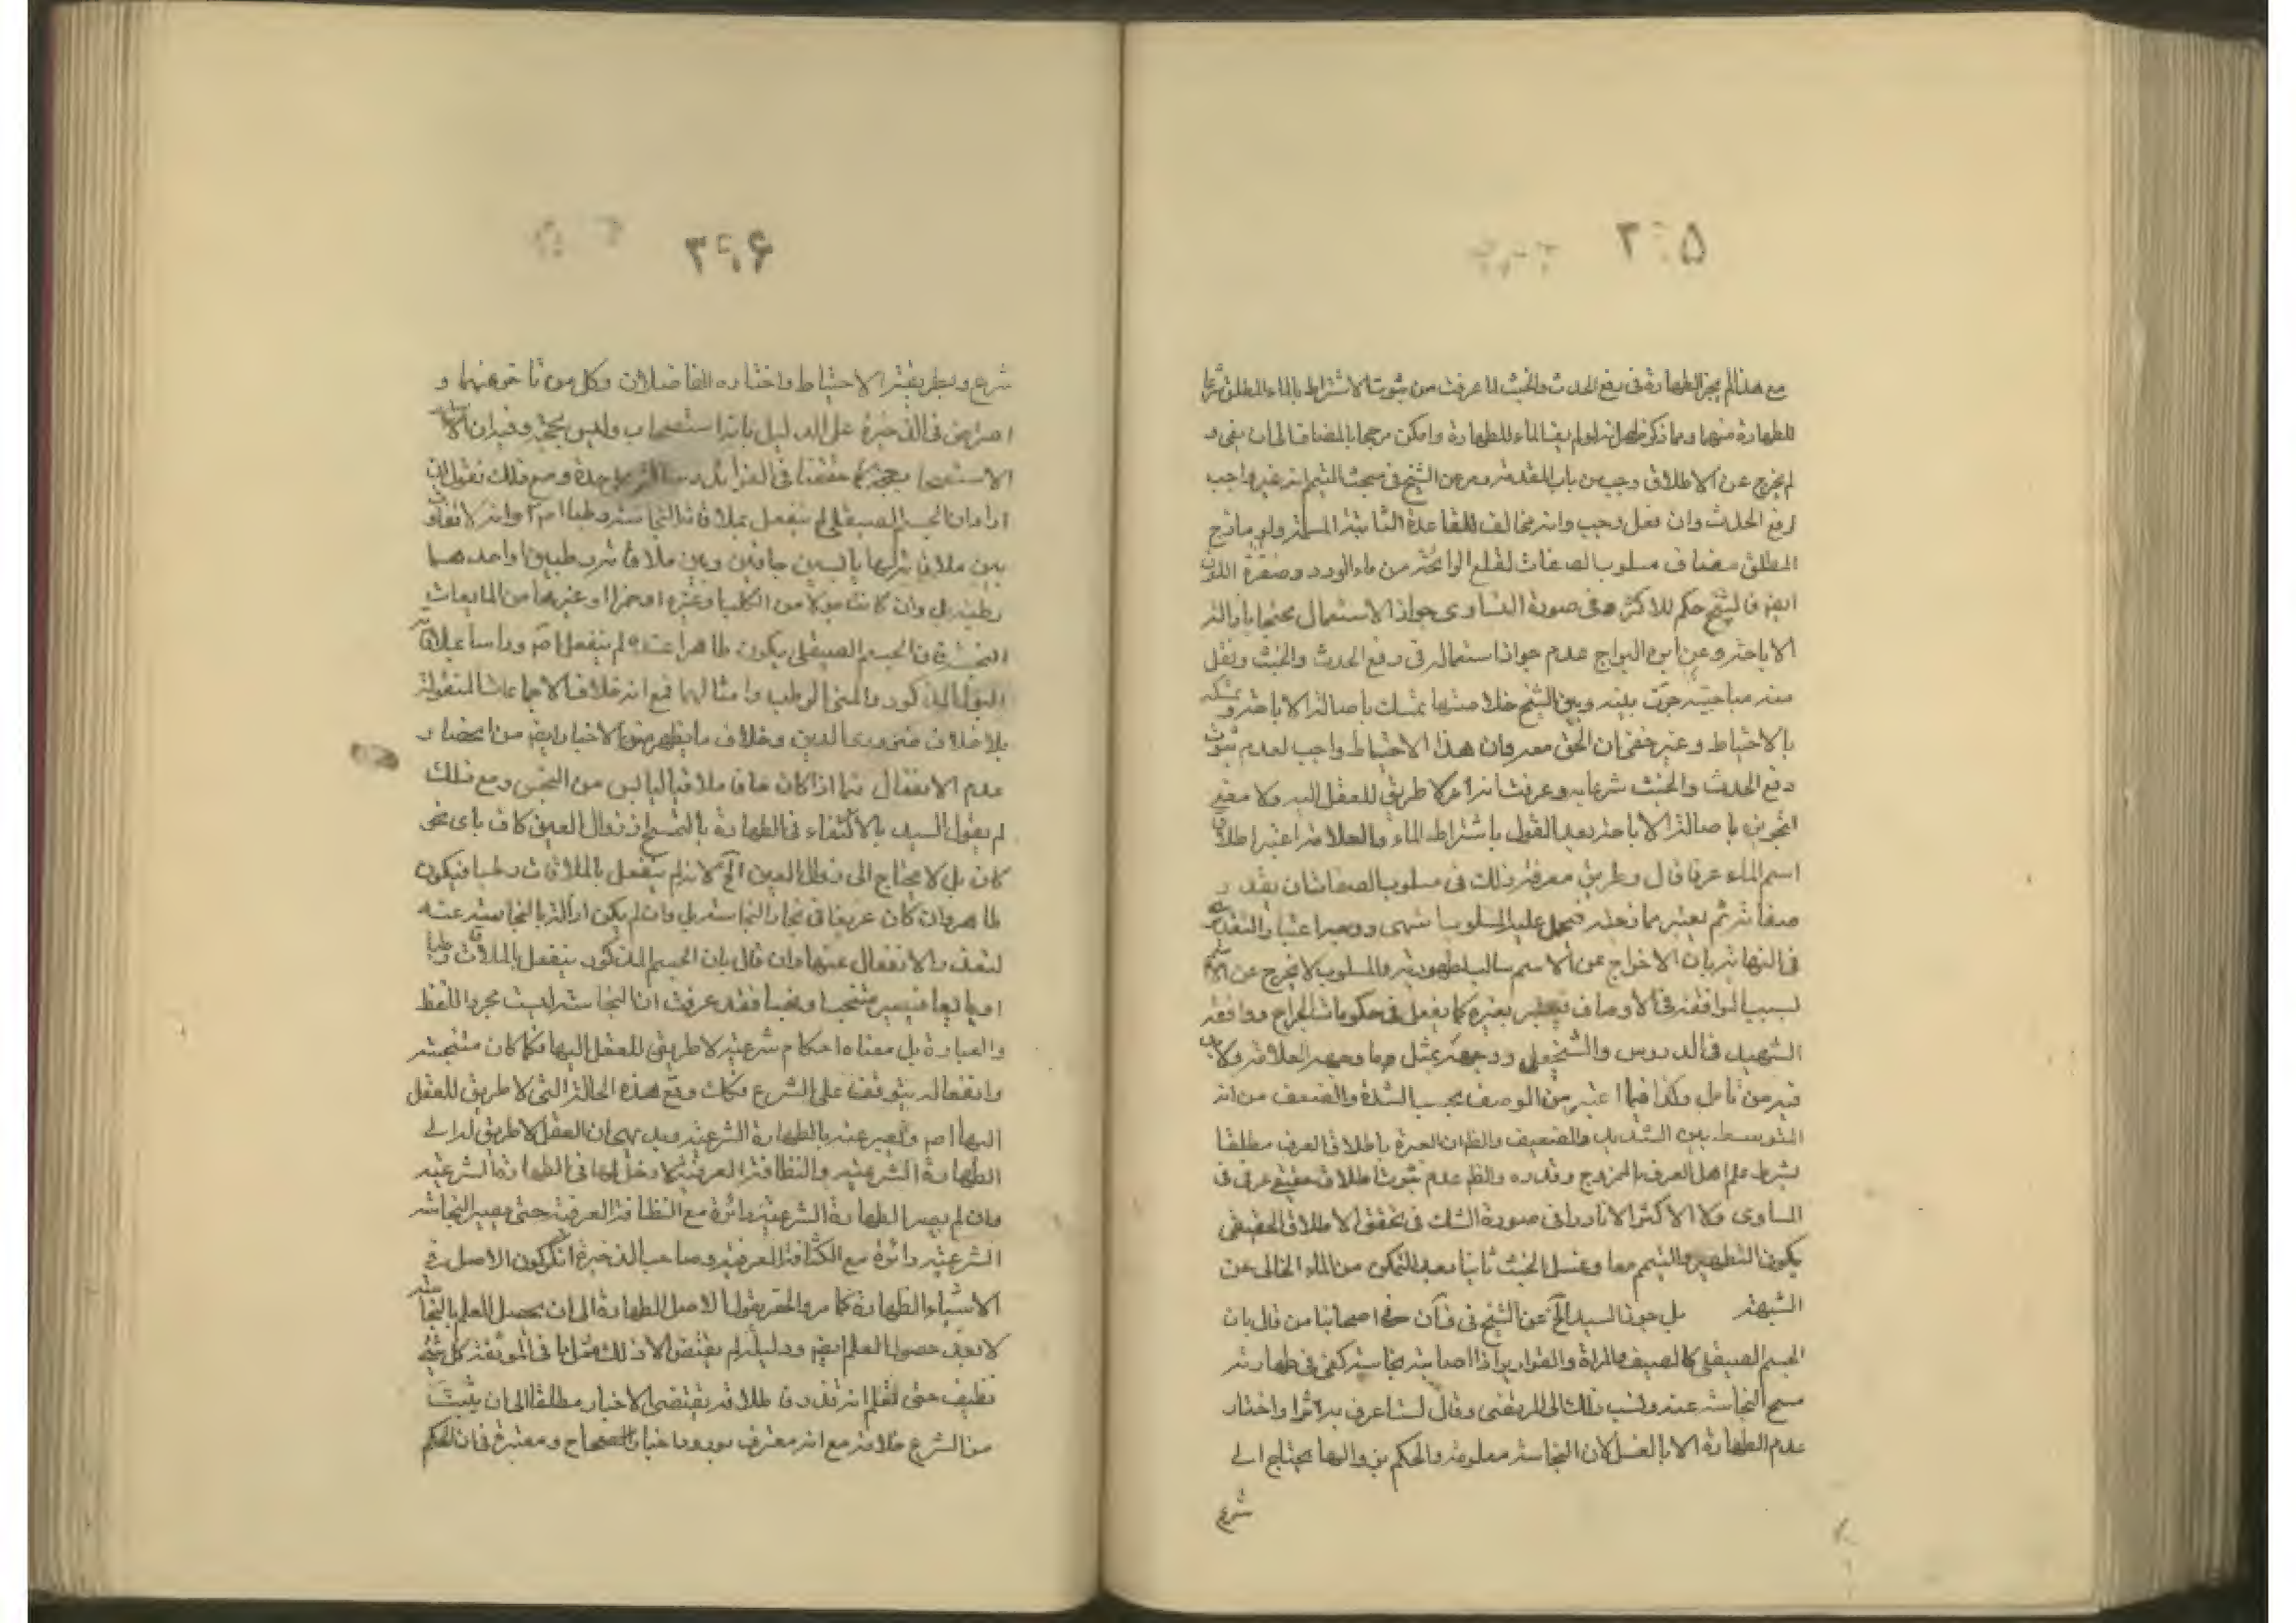 مع هذا لم يجز الطهارة فى رفع الحدث والخبث لما عرفت من ثبوت الاشتراط بالماء المطلق شرعا
للطهارة منهما ومما ذكر ظهر انه لو لم يف الماء للطهارة وامكن مزجها بالمضاف الى ان يفى و
لم يخرج عن الاطلاق وجب من باب المقدمة وعن الشيخ فى مبحث التيمم انه غير واجب
لرفع الحدث وان فعل وجب وانه مخالف للقاعدة الثابتة المسلمة ولو مازج
المطلق مضاف مسلوب الصفات لقطع الرائحة من ماء الورد وصفرة اللون
ايضا فالشيخ حكم للاكثر وفى صورة التساوى جواز الاستعمال محتجا باصالة
الاباحة وعن ابن البراج عدم جواز استعماله فى رفع الحدث والخبث ونقل
عنه مباحثة جرت بينه وبين الشيخ خلاصتها تمسك باصالة الاباحة وتمسكه
بالاحتياط وغير خفى ان الحق معه وان هذا الاحتياط واجب لعدم ثبوت
رفع الحدث والخبث شرعا به وعرفت انه لا طريق للعقل اليه ولا معنى
لتجويزه باصالة الاباحة بعد القول باشتراط الماء والعلامة اعتبر اطلاق
اسم الماء عرفا قال وطريق معرفة ذلك فى مسلوب الصفات ان يقدر
صفاته ثم يعتبر مما زجته فيحمل عليه المسلوب انتهى ووجه اعتبار التقدير
فى النهاية بان الاخراج عن الاسم سالب لطهوريته والمسلوب لا يخرج عن الاسم
لسبب الموافقة فى الاوصاف فيعتبر بغيره كما يفعل فى حكومات الجراح ووافقه
الشهيد فى الدروس والشيخ على ووجهه بمثل ما وجهه العلامة ولا
فيه من تأمل وكذا فيما اعتبر من الوصف بحسب الشدة والضعف من انه
المتوسط بين الشديد والضعيف والظ ان العبرة باطلاق العرف مطلقا
بشرط علم اهل العرف بالممزوج وقدره والظم عدم ثبوت اطلاق حقيقى عرفى فى
المساوى ولا الاكثر الا نادرا فى صورة الشك فى تحقق الاطلاق الحقيقى
يكون التطهير والتيمم معا وغسل الخبث ثانيا بعد التمكن من الماء الخالى عن
الشبهة بل جوز السيد الخ عن الشيخ فى ف ان فى اصحابنا من قال بان
الجسم الصيقلى كالسيف والمراة والقوارير اذا اصابته نجاسة كفى فى طهارته
مسح النجاسة عنه ونسب ذلك الى المرتضى وقال لست اعرف به اثرا واختار
عدم الطهارة الا بالغسل لان النجاسة معلومة والحكم بزوالها يحتاج الى
شرع
٣٠۵
٣٠۶
شرع وبطريقة الاحتياط واختاره الفاضلان وكل من تاخر عنهما و
اعترض فى الذخيرة على الدليل بانه استصحاب وليس بحجة وفيه ان
الاستصحاب حجة كما حققنا فى الفوائد على حدة ومع ذلك نقول ان
اراد ان الجسم الصيقلى لم ينفعل بملاقاة النجاسة رطبا اصلا وانه لا تفاوت
بين ملاقاته لها يابسين جافين وبين ملاقاته رطبين او احدهما
رطبة بل وان كانت بولا من الكلب او غيره او خمرا او غيرها من المايعات
النجسة فان الجسم الصيقلى يكون طاهرا عنده لم ينفعل اصلا وراسا بملاقاته
البول المذكور والمنى الرطب وامثالهما فمع انه خلاف الاجماعات المنقولة
بلا خلاف ضرورى الدين وخلاف ما يظهر من الاخبار ايضا من انحصار
عدم الانفعال فيما اذا كان جافا ملاقيا لليابس من النجس ومع ذلك
لم يقول السيد بالاكتفاء فى الطهارة بالمسح اذ زوال العين كاف باى نحو
كان بل لا يحتاج الى زوال العين الخ لانه لم ينفعل بالملاقات رطبا فيكون
طاهر وان كان غريقا فى بحار النجاسة بل وان لم يكن ازالة النجاسة عنه
لتعذر الانفعال عنها وان قال بان الجسم المذكور ينفعل بالملاقات رطبا
او مايعا فيصير متنجسا ونجسا فقد عرفت ان النجاسة ليست مجرد اللفظ
والعبارة بل معناه احكام شرعية لا طريق للعقل اليها فكما كان متنجسة
وانفعاله يتوقف على الشرع فكك رفع هذه الحالة التى لا طريق للعقل
اليها اصلا والتعبير عنه بالطهارة الشرعية وبديهى ان العقل لا طريق له الى
الطهارة الشرعية والنظافة العرفية لا دخل لها فى الطهارة الشرعية
وان لم يصر الطهارة الشرعية دائرة مع النظافة العرفية حتى يصير النجاسة
الشرعية دائرة مع الكثافة العرفية وصاحب الذخيرة انكر كون الاصل فى
الاشياء الطهارة كما مر والحق يقول الاصل الطهارة الى ان يحصل العلم بالنجاسة
لا بعد حصول العلم ايضا ودليله لم يقتض الا ذلك مثل ما فى الموثقة كل شئ
نظيف حتى تعلم انه قذر وان طلاقه يقتضى الاخبار مطلقا الى ان يثبت
من الشرع خلافه مع انه معترف بورود اخبار الصحاح ومعتبرة فى ان الحكم